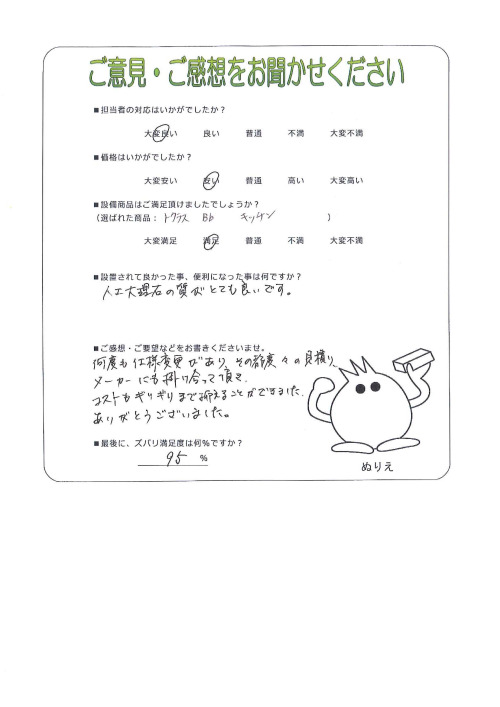 ご意見・ご感想をお聞かせください
■担当者の対応はいかがでしたか？
大変良い 良い 普通 不満 大変不満
■価格はいかがでしたか？
大変安い 安い 普通 高い 大変高い
■設備商品はご満足頂けましたでしょうか？
（選ばれた商品： トクラス Bb キッチン ）
大変満足 満足 普通 不満 大変不満
■設置されて良かった事、便利になった事は何ですか？
人工大理石の質がとても良いです。
■ご感想・ご要望などをお書きくださいませ。
何度も仕様変更があり、その都度々の見積り、
メーカーにも掛け合って頂き、
コストもぎりぎりまで抑えることができました。
ありがとうございました。
■最後に、ズバリ満足度は何%ですか？
95 %
ぬりえ